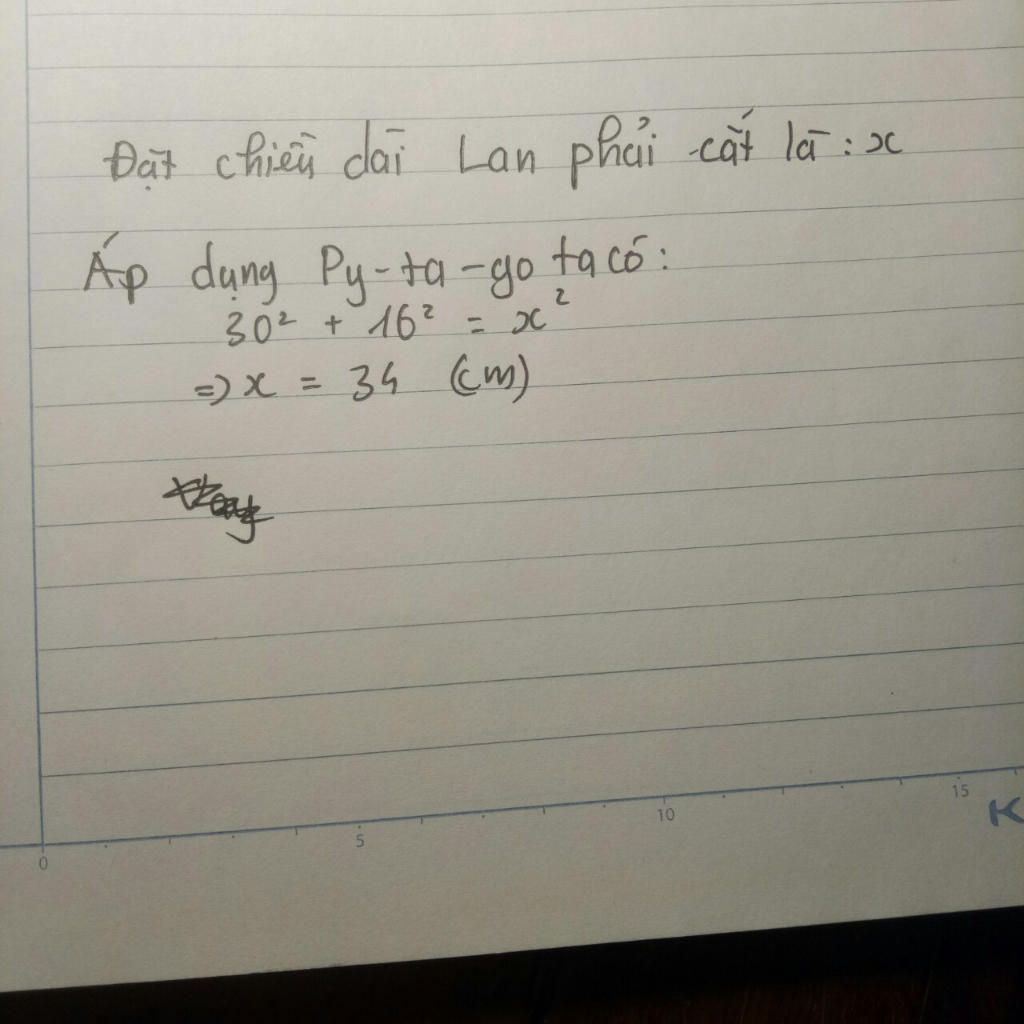 Đặt chiều dài Lan phải cắt là : x
Áp dụng Py-ta-go ta có :
30² + 16² = x²
=> x = 34 (cm)
0 5 10 15 K